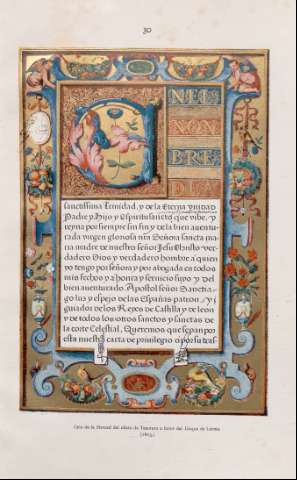 30
EN EL
NON
BRE
DLA
sanctissima Trinidad, y de la Eterna vnidad
Padre y Hijo y Spiritu sancto que vibe y
reyna por siempre sin fin y de la bien auentu
rada virgen gloriosa nra Señora sancta ma
ria madre de nuestro señor Jesu Christo ver
dadero Dios y verdadero hombre a quien
yo tengo por señora y por abogada en todos
mis fechos y a honra y seruicio suyo y del
bien auenturado Apostol señor Sanctia
go luz y espejo de las Españas patron y
guiador de los Reyes de Castilla y de leon
y de todos los otros sanctos y sanctas de
la corte Celestial, Queremos que sepan por
esta nuestra carta de priuilegio o por su tras
Orla de la Merced del oficio de Tesorero a favor del Duque de Lerma
(1603)